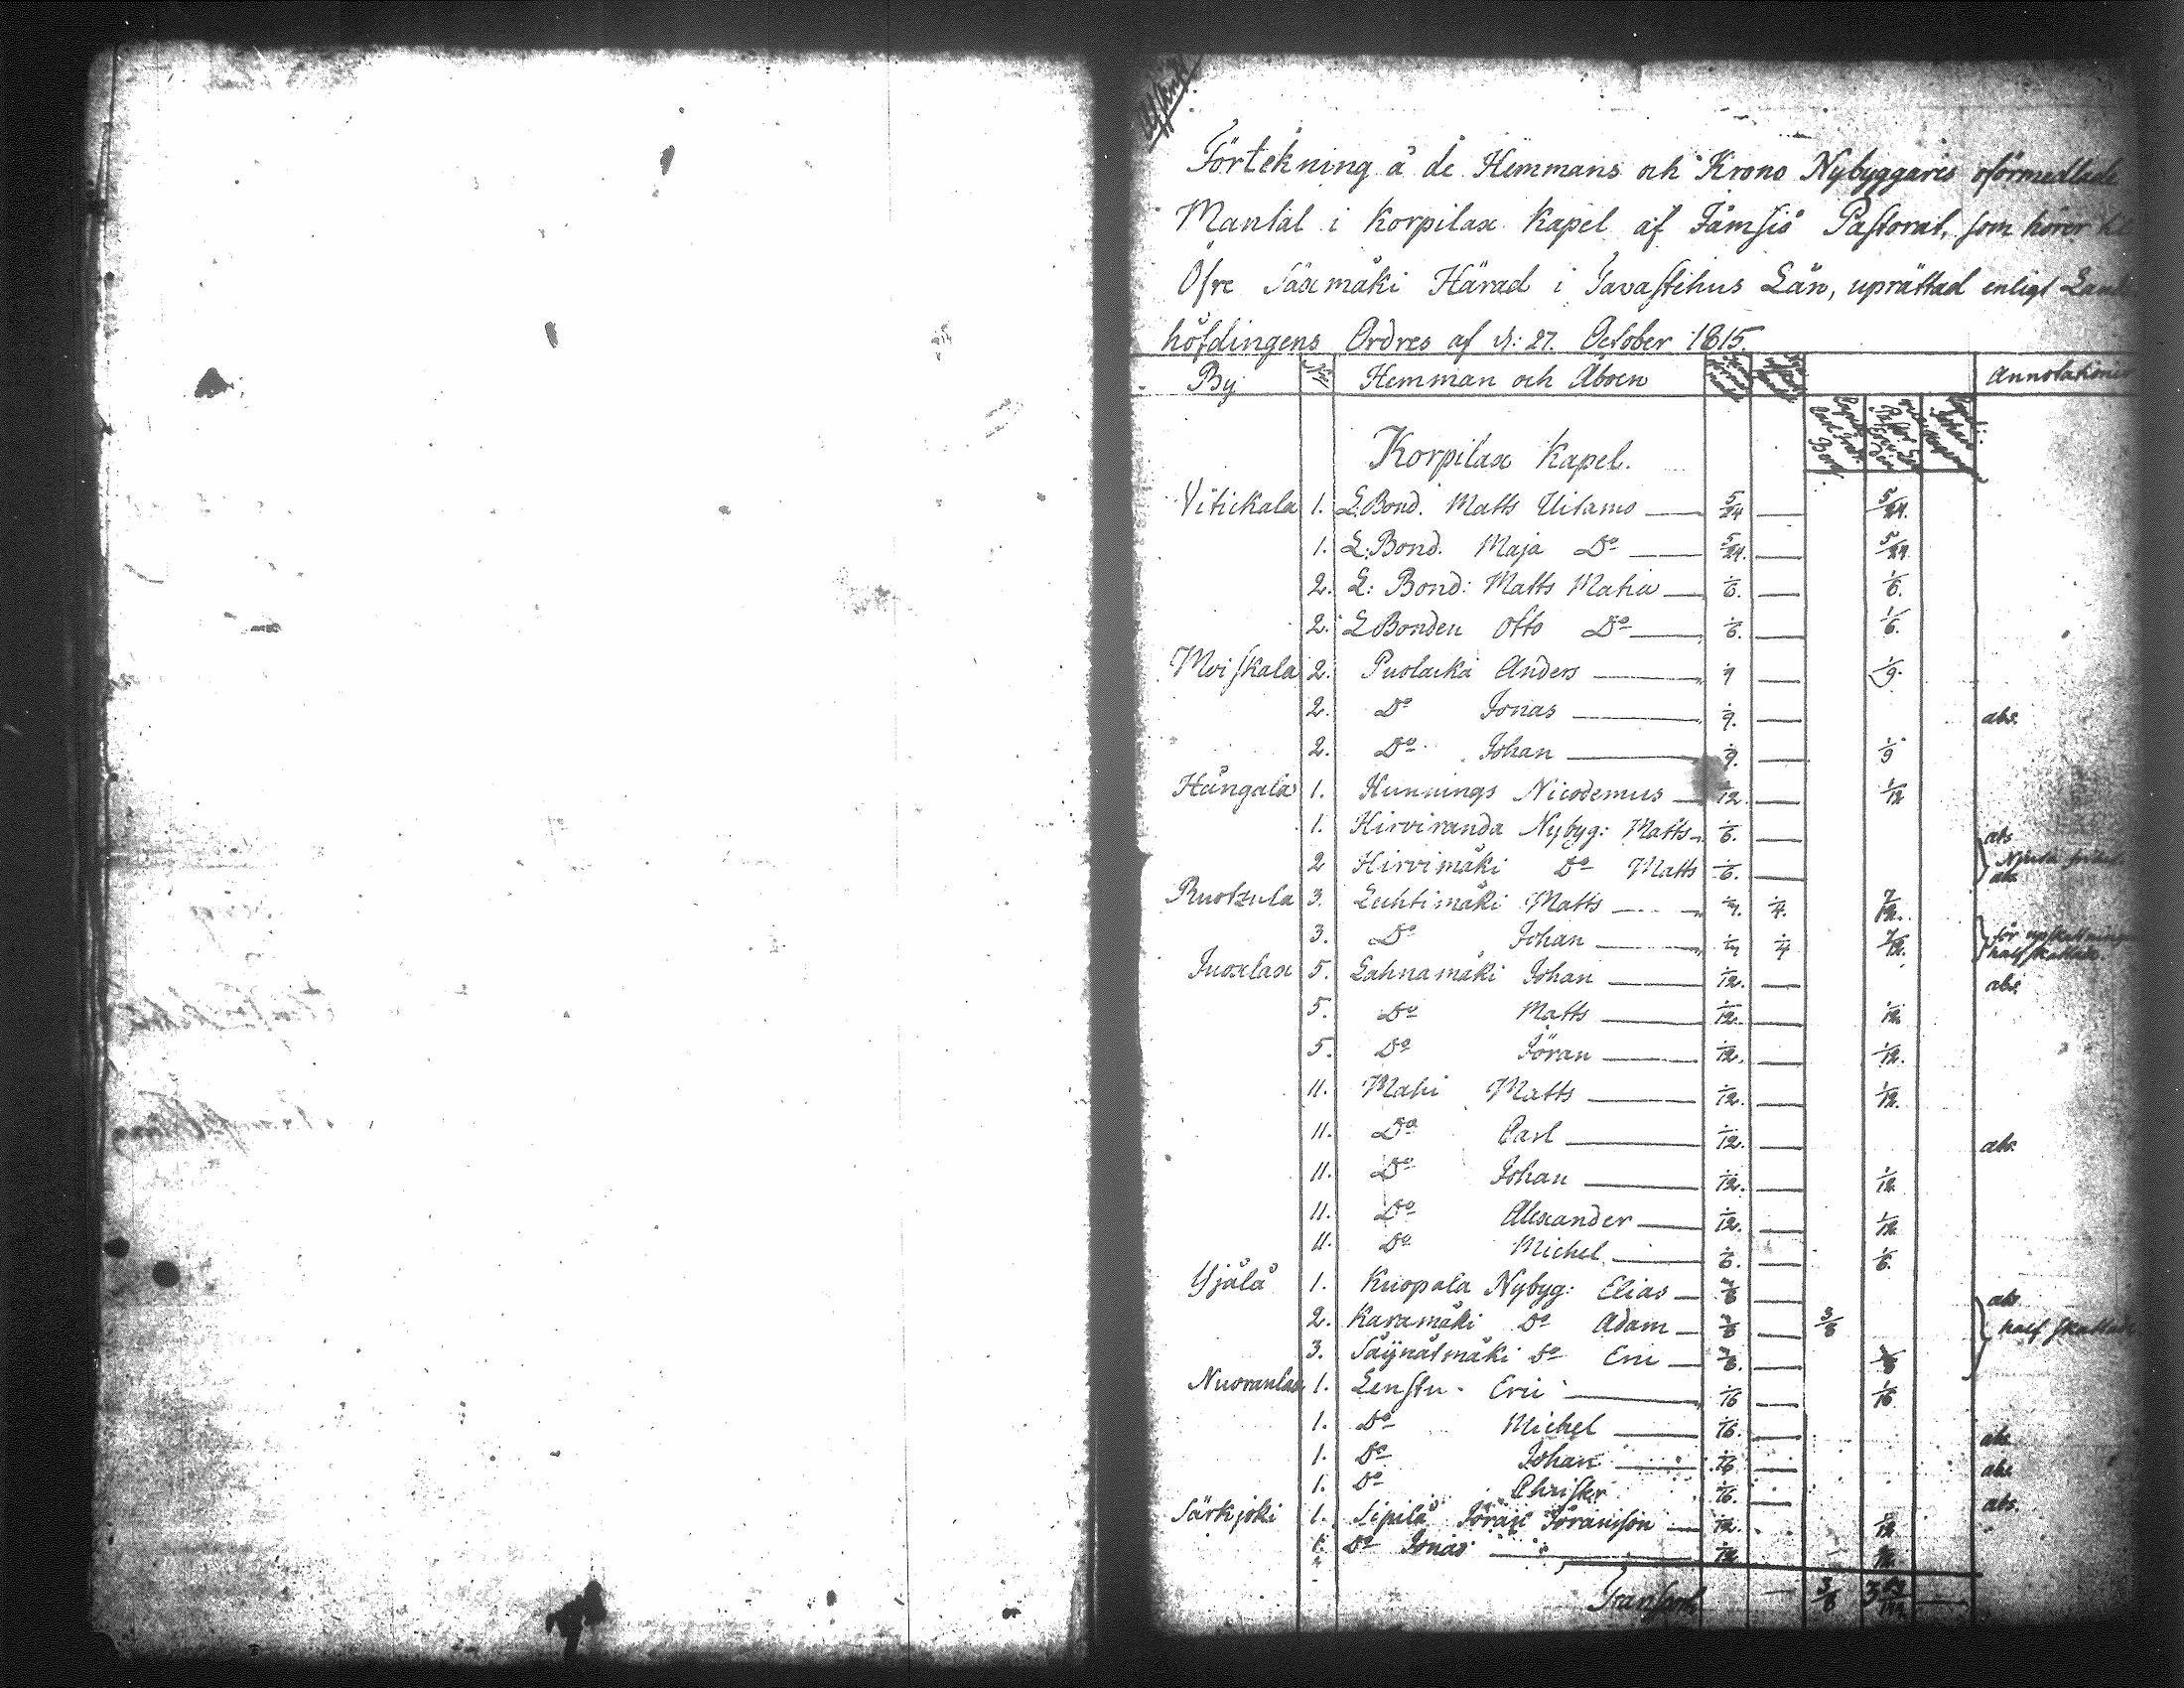 Afskrift.
Förtekning å de Hemmans och Krono Nybyggares oförmedlade
Mantal i Korpilax Kapel af Jämsiö Pastorat, som hörer til
Öfre Säxmäki Härad i Tavastehus Län, uprättad enligt Lands
höfdingens Ordres af d: 27. October 1815.
By No Hemman och Åboen Annotationer
Korpilax Kapel.
Vitickala 1. L:Bond. Matts Uitamo 5/24 5/24.
1. L:Bond. Maja Do 5/24. 5/24
2. L: Bond: Matts Matia 1/6. 1/6.
2. L Bonden Otto Do 1/6. 1/6.
Moiskala 2. Puolacka Anders 1/9 1/9.
2. Do Jonas 1/9. abs.
2. Do Johan 1/9. 1/9
Hångala 1. Hunnings Nicodemus 1/12 1/12
1. Hirviranda Nybyg: Matts 1/6. abs
2 Hirvimäki Do Matts 1/6. abs
Ruotzula 3. Lechtimäki Matts 1/4. 7/12.
3. Do Johan 1/4 7/12. half skattade.
Juoxlax 5. Lahnamäki Johan 1/12. abs.
5. Do Matts 1/12. 1/12.
5. Do Jöran 1/12. 1/12.
11. Mahi Matts 1/12. 1/12.
11. Do Carl 1/12. abs.
11. Do Johan 1/12. 1/12
11. Do Alexander 1/12. 1/12
11. Do Michel 1/6. 1/6.
Yjälä 1. Kuopala Nybyg: Elias 3/8 abs
2. Karamäki Do Adam 3/8 3/8 half skattade
3. Säynätmäki Do Eric 3/8. 3/8
Nuoranlax 1. Lenstu Eric 1/16 1/16
1. Do Michel 1/16. abs
1. Do Johan 1/16 abs
1. Do Christer 1/16. abs.
Särkjoki 1. Sipilä Jöran Jöransson 1/12. 1/12
1. Do Jonas 1/12 1/12.
Transport 3/8